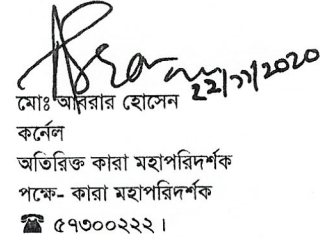 ২২/১১/২০২০
মোঃ আবরার হোসেন
কর্নেল
অতিরিক্ত কারা মহাপরিদর্শক
পক্ষে- কারা মহাপরিদর্শক
☎ ৫৭৩০০২২২।